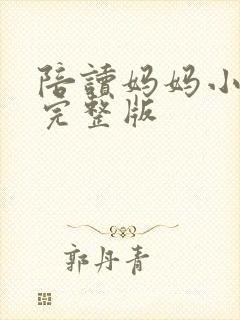 陪讀妈妈小
完整版
郭丹青